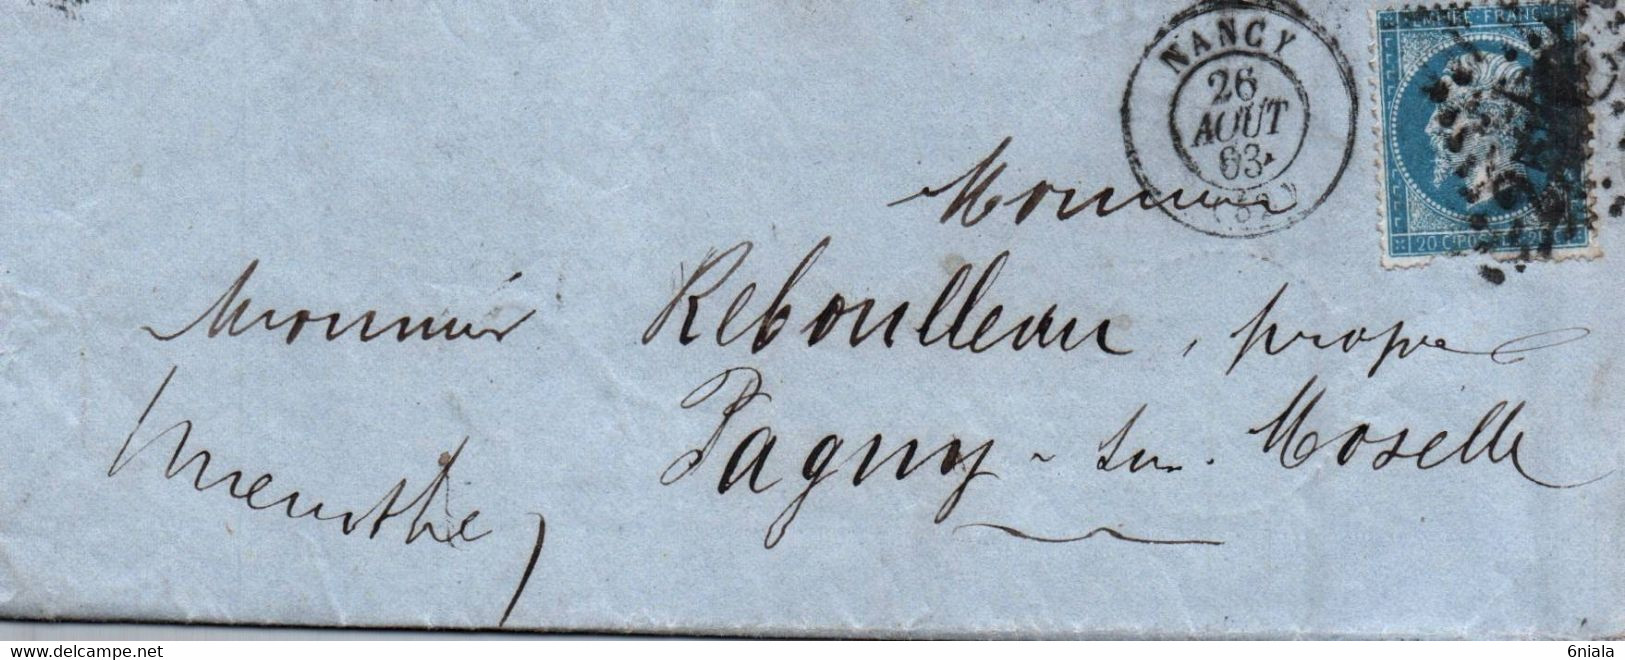 NANCY
26
AOUT
63
(52)
EMPIRE FRANC
20 C. POSTES 20 C.
Monsieur
Monsieur Reboulleau, propre
Pagny-sur-Moselle
Meurthe
www.delcampe.net
6niala